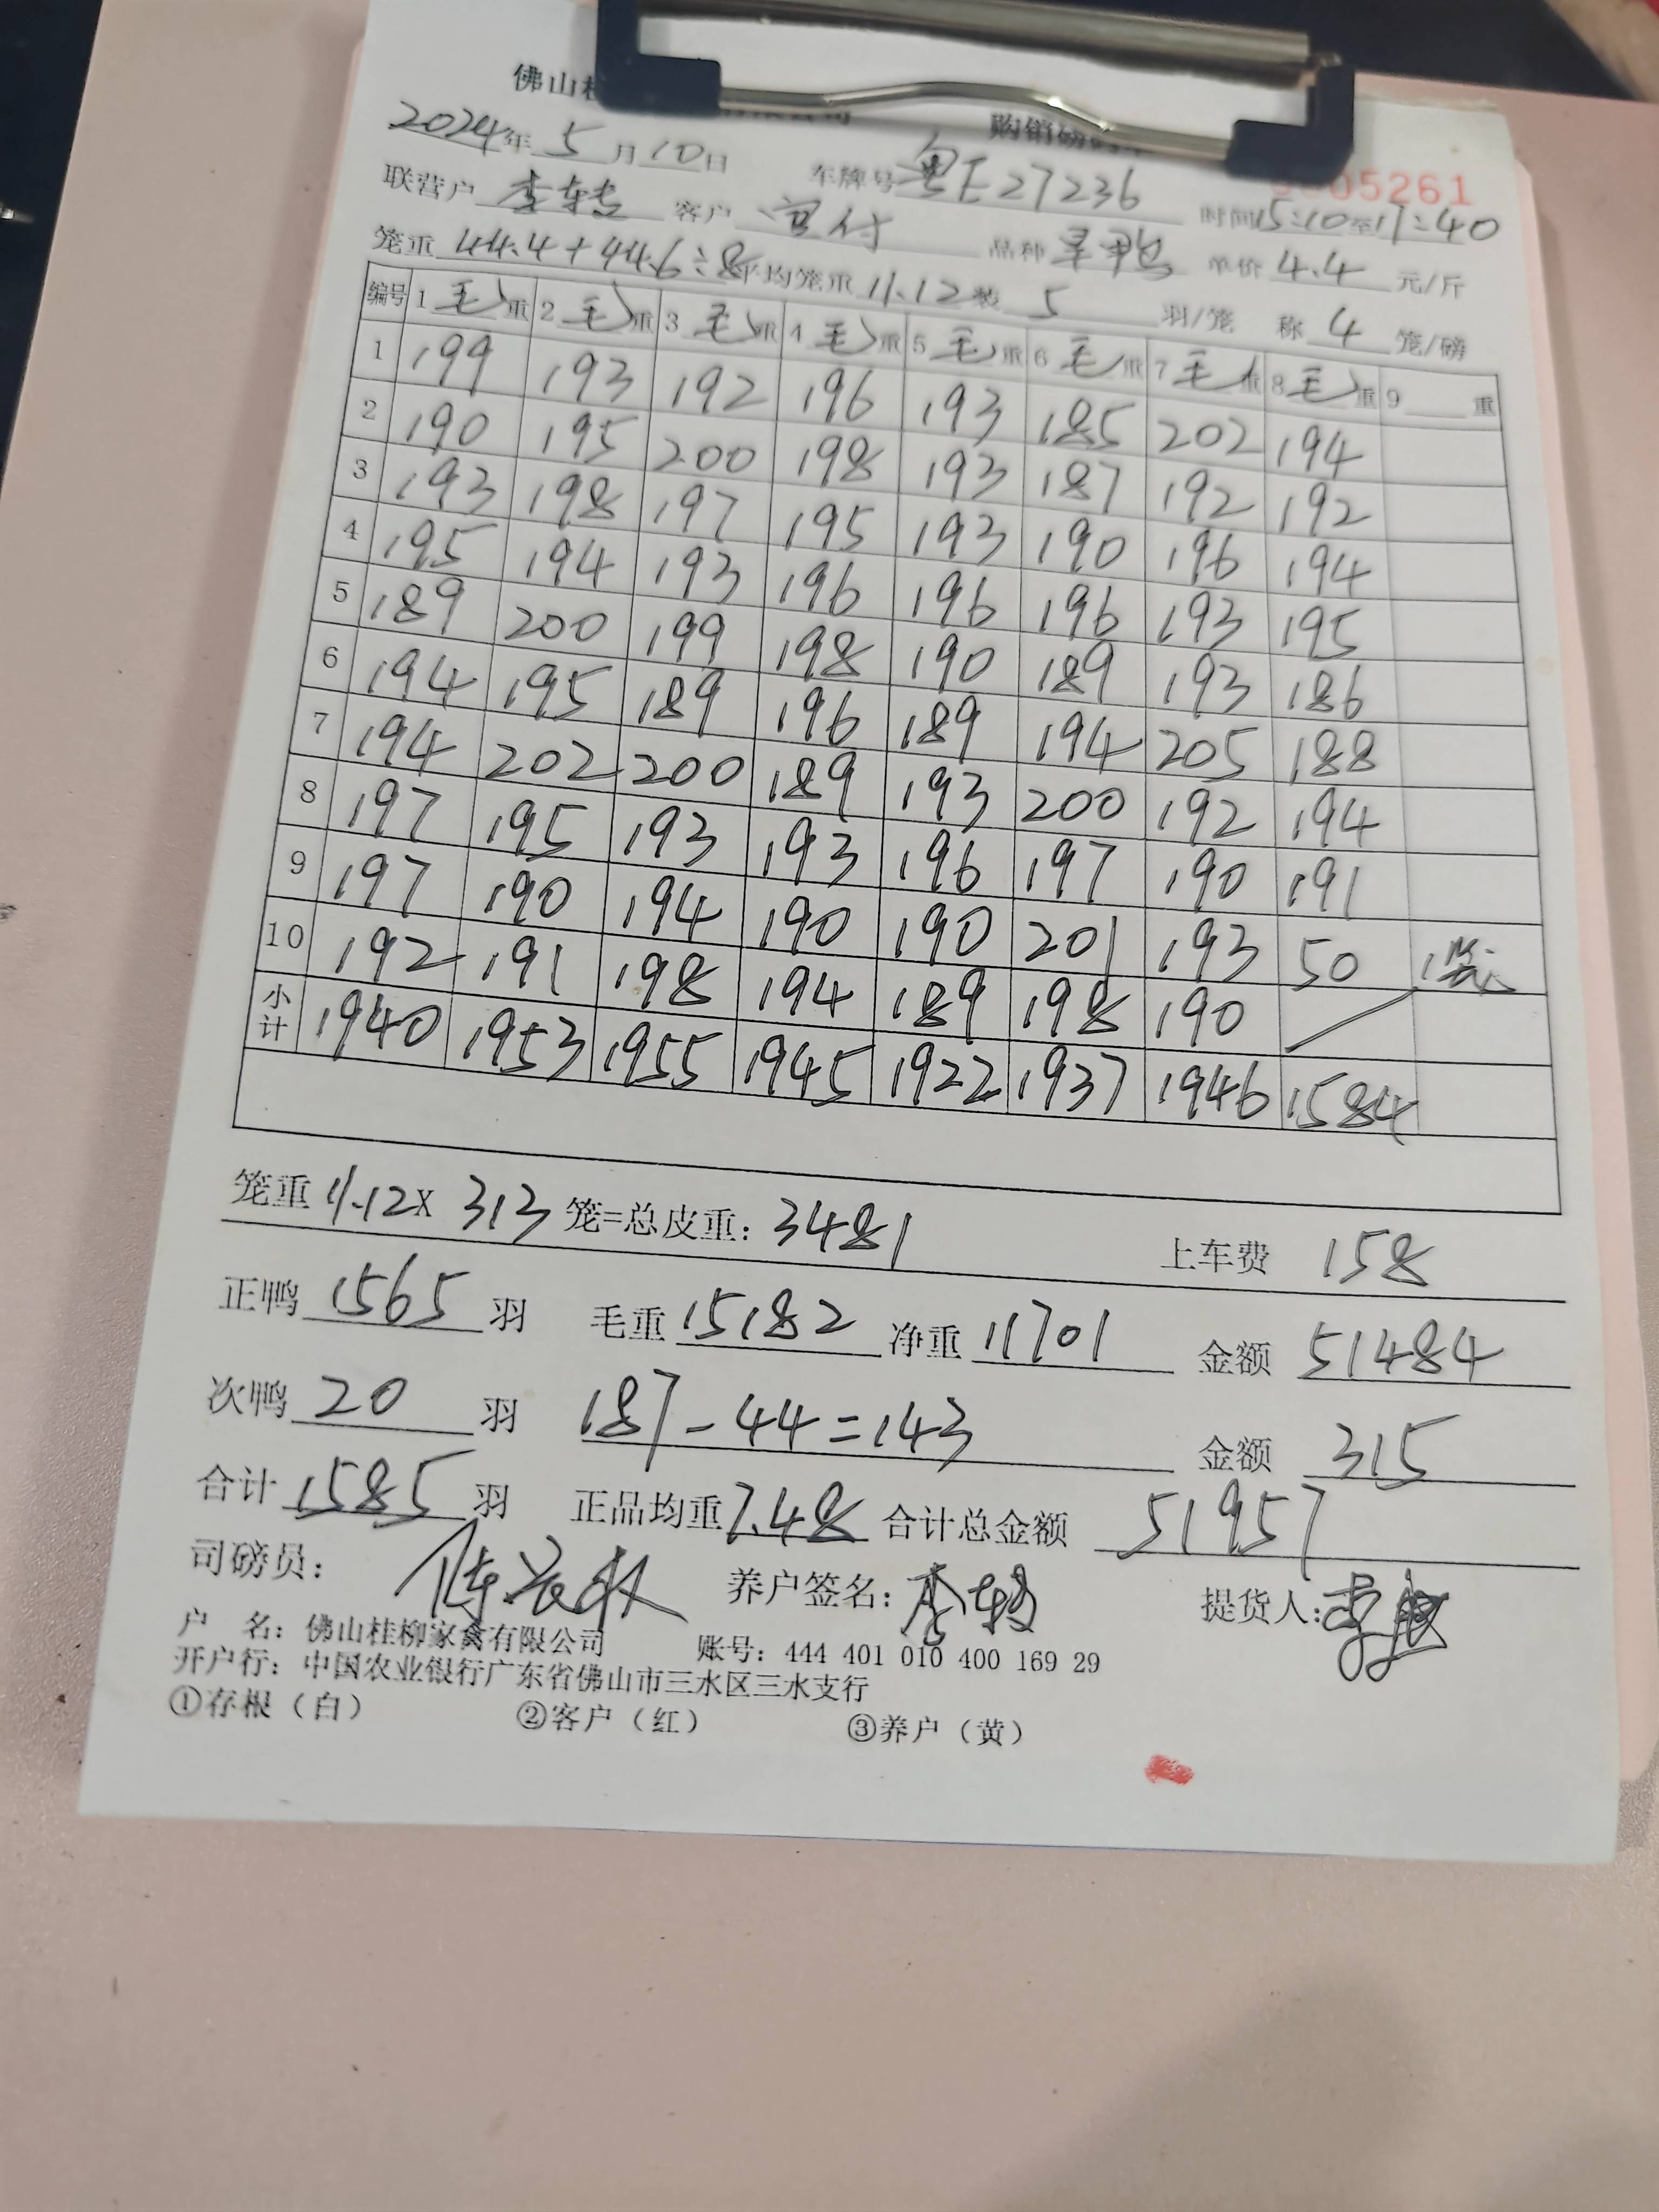 佛山桂
购销磅码单
2024年5月10日 车牌号 粤E27236 05261
联营户 客户 时间15:10至17:40
笼重 44.4+44.6÷8 平均笼重 11.12 装 5 羽/笼 品种 单价 4.4 元/斤
称 4 笼/磅
编号 1 毛重 2 毛重 3 毛重 4 毛重 5 毛重 6 毛重 7 毛重 8 毛重 9 重
1 199 193 192 196 193 185 202 194
2 190 195 200 198 193 187 192 192
3 193 198 197 195 193 190 196 194
4 195 194 193 196 196 196 193 195
5 189 200 199 198 190 189 193 186
6 194 195 189 196 189 194 205 188
7 194 202 200 189 193 200 192 194
8 197 195 193 193 196 197 190 191
9 197 190 194 190 190 201 193 50 1笼
10 192 191 198 194 189 198 190
小计 1940 1953 1955 1945 1922 1937 1946 1584
笼重 11.12X 313 笼=总皮重: 3481 上车费 158
正鸭 1565 羽 毛重 15182 净重 11701 金额 51484
次鸭 20 羽 187-44=143 金额 315
合计 1585 羽 正品均重 7.48 合计总金额 51957
司磅员: 养户签名: 提货人:
户 名: 佛山桂柳家禽有限公司 账号: 444 401 010 400 169 29
开户行: 中国农业银行广东省佛山市三水区三水支行
①存根(白) ②客户(红) ③养户(黄)